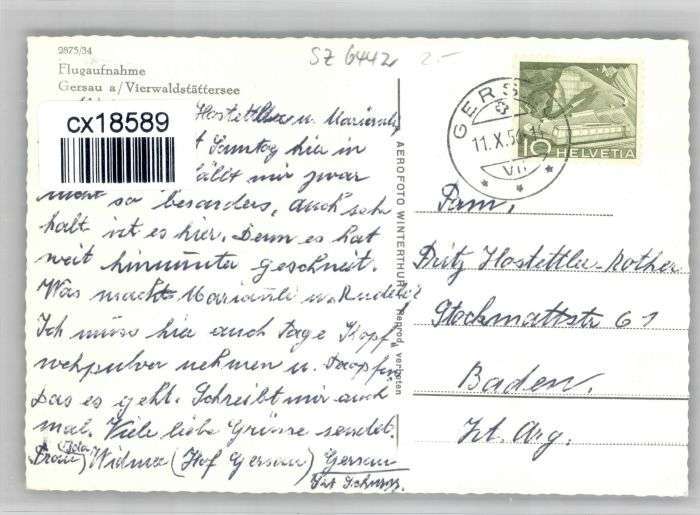 2875/34
SZ 6442
2.-
Flugaufnahme
Gersau a/Vierwaldstättersee
cx18589
Hostettler u. Marieuli
Sonntag hier in
fällt mir zwar
nicht so besonders, auch sehr
halt ist es hier. Denn es hat
weit hinunter geschneit.
Was macht Marianli u. Ruedeli?
Ich muss hier auch Tage Kopf
wehpulver nehmen u. Tropfen
das es geht. Schreibt mir auch
mal. Viele liebe Grüsse sendet
Frau (Ida) Widmer (Hof Gersau) Gersau
Kt. Schwyz.
AEROFOTO WINTERTHUR Reprod. verboten
GERSAU
11.X.50
VII
10 HELVETIA
Fam.
Fritz Hostettler-Rother
Stockmattstr 61
Baden.
Kt. Arg.